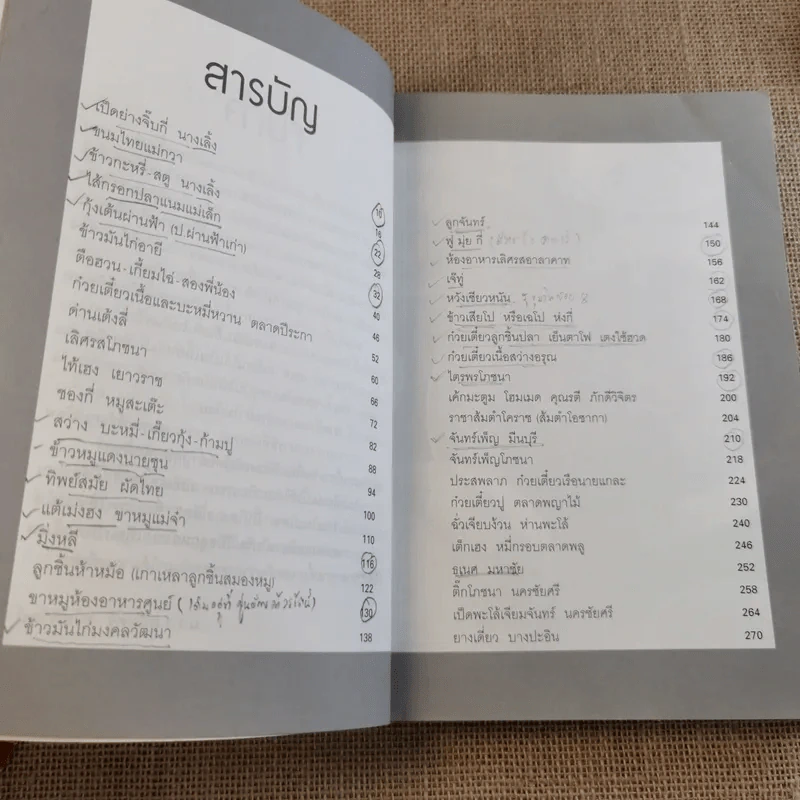 สารบัญ
เป็ดย่างจิ๊บกี่ นางเลิ้ง 10
ขนมไทยแม่กวา 16
ข้าวกะหรี่-สตู นางเลิ้ง 22
ไส้กรอกปลาแนมแม่เล็ก 28
กุ้งเต้นผ่านฟ้า (ป.ผ่านฟ้าเก่า) 32
ข้าวมันไก่อายี 40
ตือฮวน-เกี้ยมไฉ่-สองพี่น้อง 46
ก๋วยเตี๋ยวเนื้อและบะหมี่หวาน ตลาดปีระกา 52
ด่านเต้งลี่ 60
เลิศรสโภชนา 66
ไท้เฮง เยาวราช 72
ซองกี่ หมูสะเต๊ะ 82
สว่าง บะหมี่-เกี๊ยวกุ้ง-ก้ามปู 88
ข้าวหมูแดงนายชุน 94
ทิพย์สมัย ผัดไทย 100
แต้เม่งฮง ขาหมูแม่จำ 110
มิ่งหลี 116
ลูกชิ้นห้าหม้อ (เกาเหลาลูกชิ้นสมองหมู) 122
ขาหมูห้องอาหารศูนย์ 130
ข้าวมันไก่มงคลวัฒนา 138
ลูกจันทร์ 144
ฟู มุ่ย กี่ 150
ห้องอาหารเลิศรสอาลาคาท 156
เจ๊ทู่ 162
หวังเชียวหนัน 168
ข้าวเสียโป หรือเฉโป ห่งกี่ 174
ก๋วยเตี๋ยวลูกชิ้นปลา เย็นตาโฟ เตงใช้ฮวด 180
ก๋วยเตี๋ยวเนื้อสว่างอรุณ 186
ไตรพรโภชนา 192
เค้กมะตูม โฮมเมด คุณรตี ภักดีวิจิตร 200
ราชาส้มตำโคราช (ส้มตำโอซากา) 204
จันทร์เพ็ญ มีนบุรี 210
จันทร์เพ็ญโภชนา 218
ประสพลาภ ก๋วยเตี๋ยวเรือนายแกละ 224
ก๋วยเตี๋ยวปู ตลาดพญาไม้ 230
ฉั่วเจียบง้วน ห่านพะโล้ 240
เต็กเฮง หมี่กรอบตลาดพลู 246
ธเนศ มหาชัย 252
ติ๊กโภชนา นครชัยศรี 258
เป็ดพะโล้เจียมจันทร์ นครชัยศรี 264
ยางเดี่ยว บางปะอิน 270